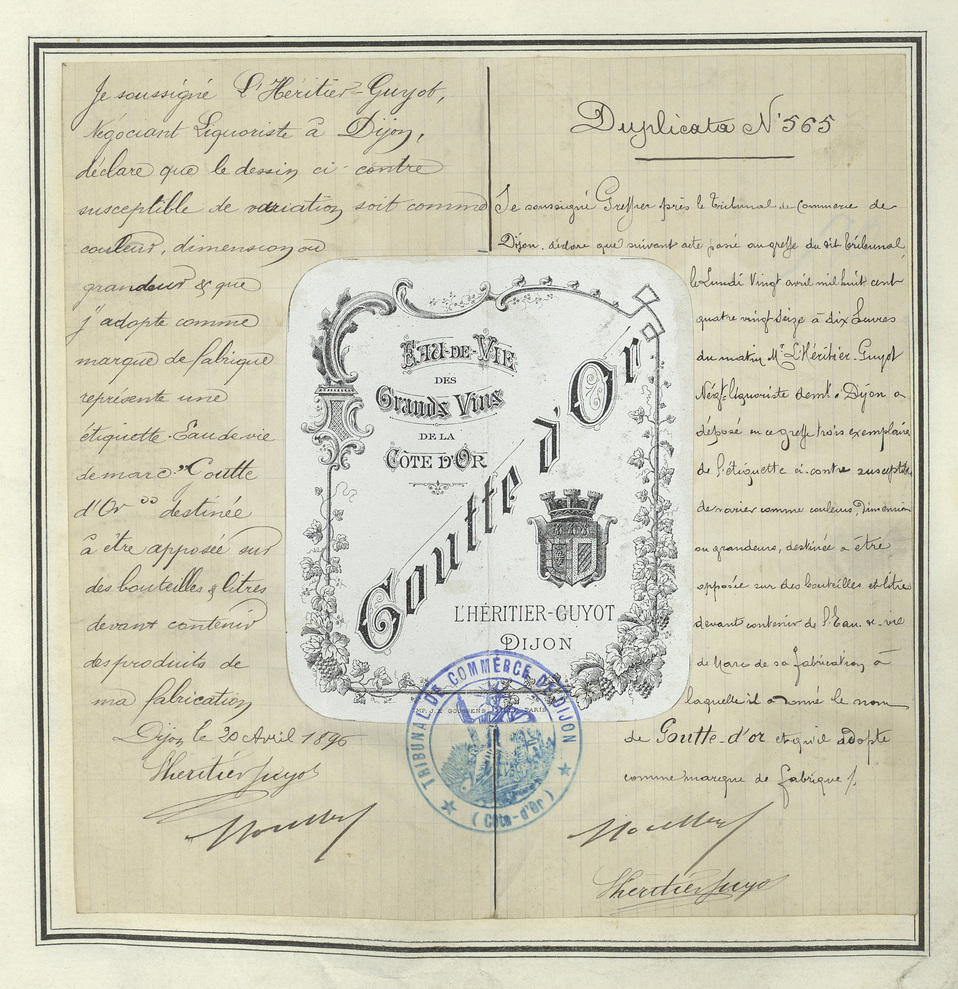 Je soussigné L'Héritier-Guyot,
Négociant Liquoriste à Dijon,
déclare que le dessin ci-contre
susceptible de variation soit comme
couleur, dimension ou
grandeur & que
j'adopte comme
marque de fabrique
représente une
étiquette Eau de vie
de marc "Goutte
d'Or" destinée
à être apposée sur
des bouteilles & litres
devant contenir
des produits de
ma fabrication
Dijon le 20 Avril 1896
Lheritier Guyot
Duplicata N° 565
Je soussigné Greffier près le Tribunal de Commerce de
Dijon, déclare que suivant acte passé au greffe du dit Tribunal,
le Lundi Vingt avril mil huit cent
quatre vingt seize à dix heures
du matin Mr L'Héritier-Guyot
Négt liquoriste demt à Dijon a
déposé en ce greffe trois exemplaires
de l'étiquette ci-contre susceptible
de varier comme couleurs, dimension
ou grandeurs, destinée a être
apposée sur des bouteilles et litres
devant contenir de l'Eau-de-vie
de Marc de sa fabrication à
laquelle il a donné le nom
de Goutte-d'or et qu'il adopte
comme marque de fabrique /.
Lheritier Guyot
EAU-DE-VIE
DES
Grands Vins
DE LA
CÔTE D'OR
Goutte d'Or
L'HÉRITIER-GUYOT
DIJON
PARIS
TRIBUNAL DE COMMERCE DE DIJON
(Côte-d'Or)